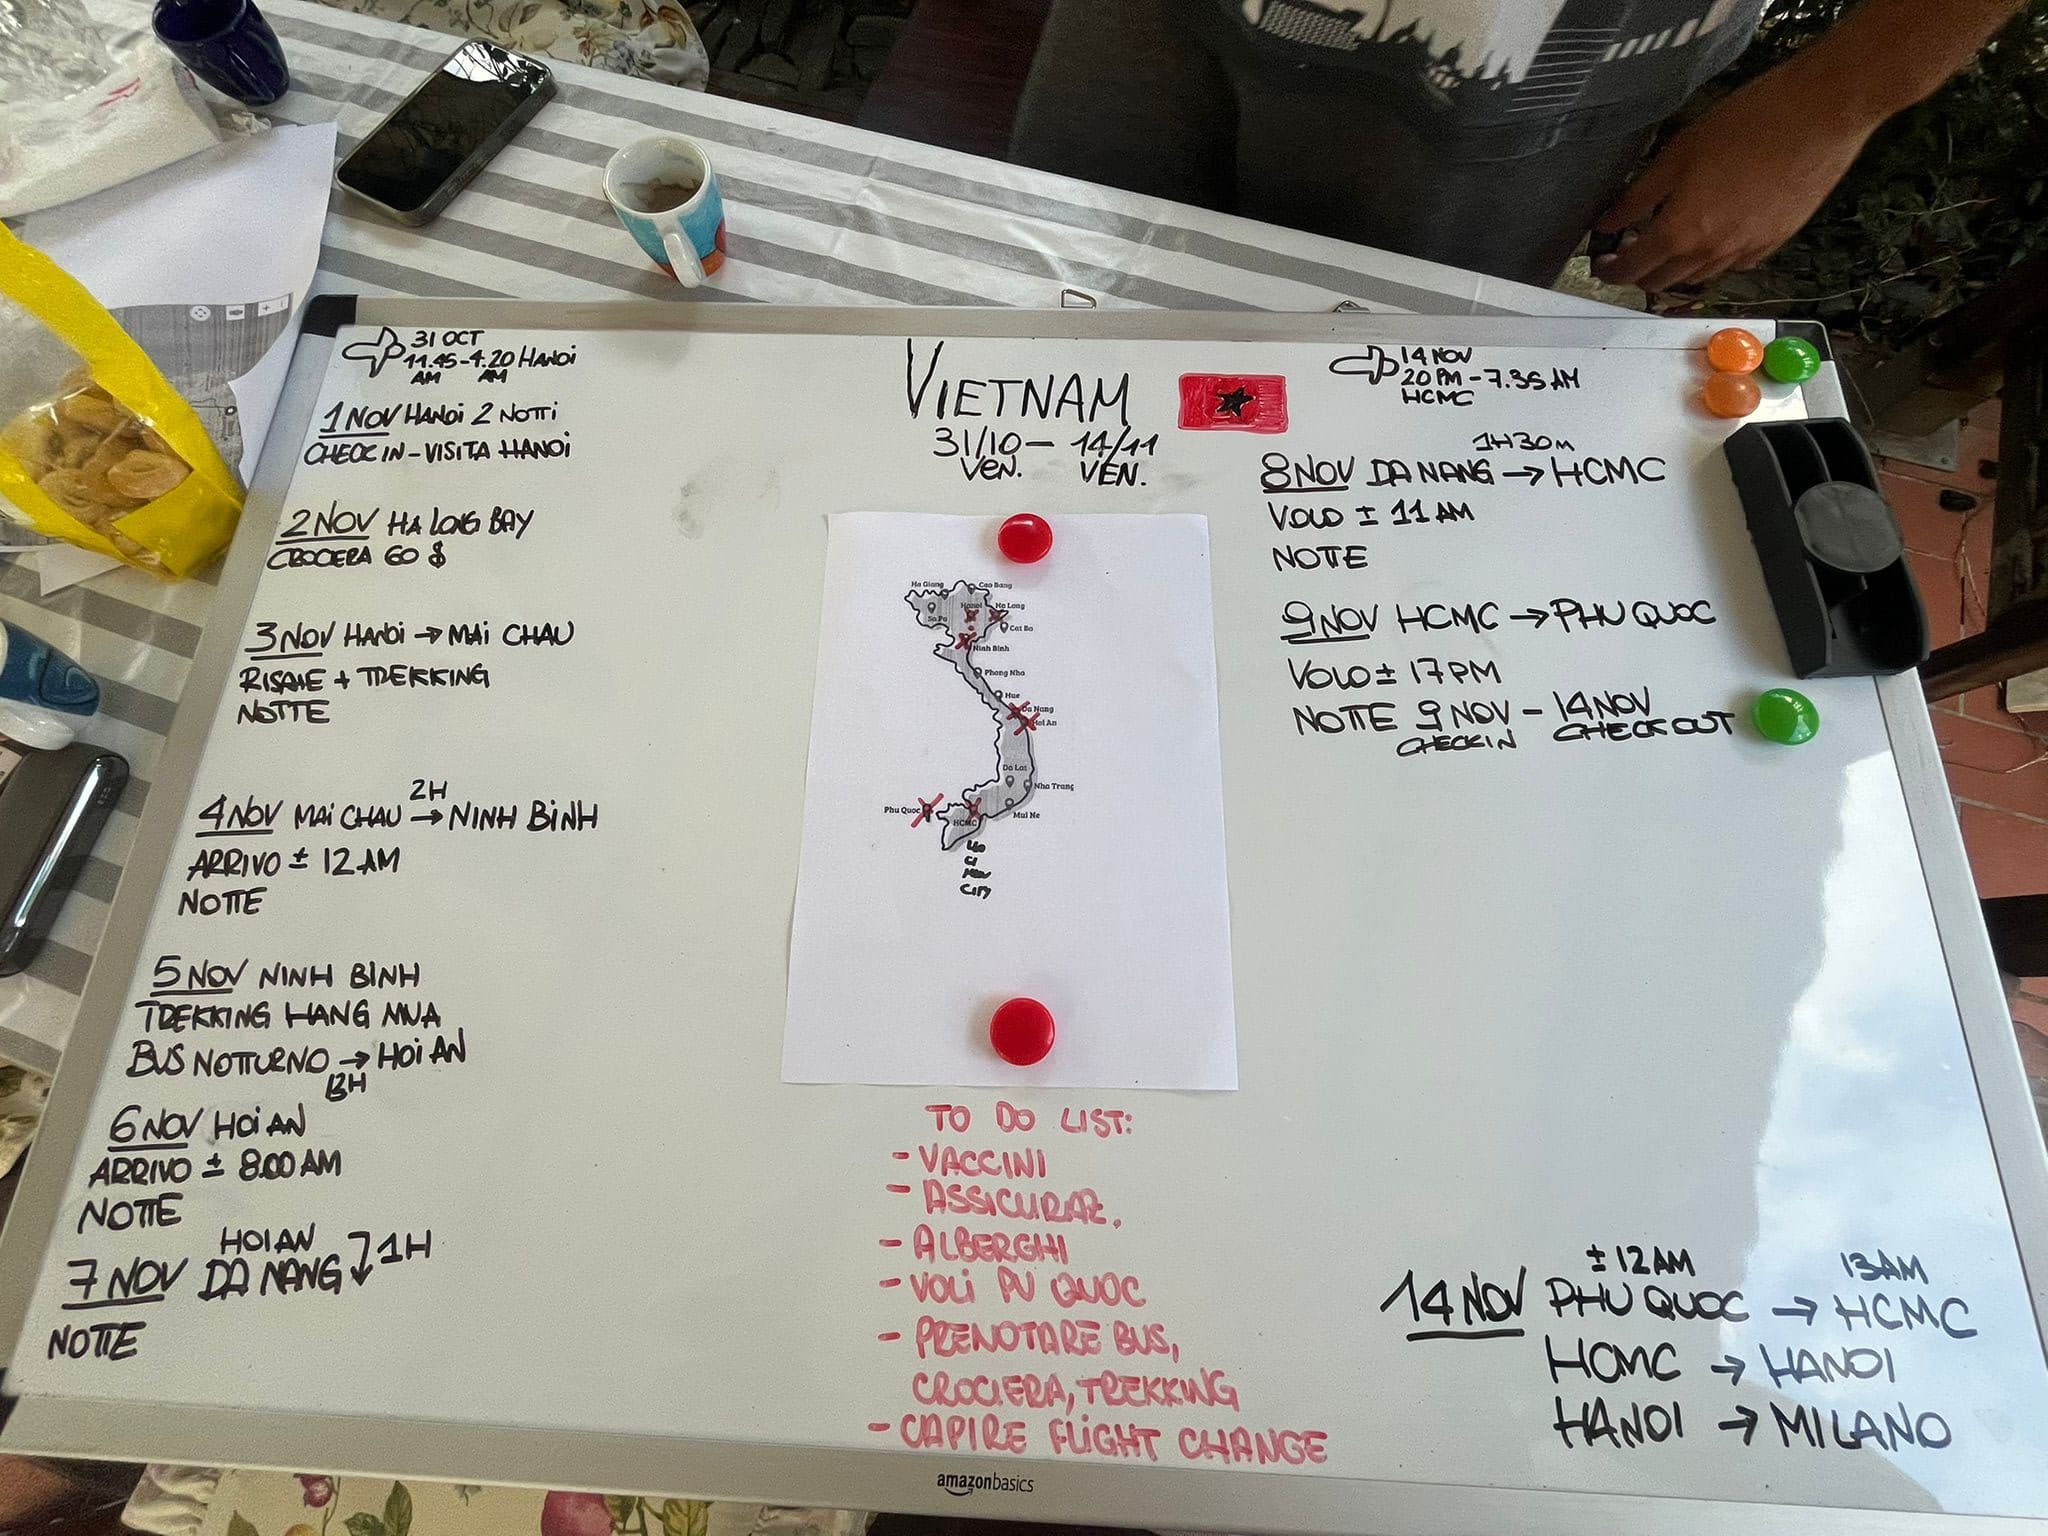 31 OCT
11.45-4.20 HANOI
AM AM
1 NOV HANOI 2 NOTTI
CHECK IN - VISITA HANOI
2 NOV HA LONG BAY
CROCIERA 60 $
3 NOV HANOI → MAI CHAU
RISAIE + TREKKING
NOTTE
2H
4 NOV MAI CHAU → NINH BINH
ARRIVO ± 12 AM
NOTTE
5 NOV NINH BINH
TREKKING HANG MUA
BUS NOTTURNO → HOI AN
13H
6 NOV HOI AN
ARRIVO ± 8.00 AM
NOTTE
HOI AN
7 NOV DA NANG 1H
NOTTE
VIETNAM
31/10 - 14/11
VEN. VEN.
Ha Giang
Cao Bang
Sa Pa
Hanoi
Ha Long
Cat Ba
Ninh Binh
Phong Nha
Hue
Da Nang
Hoi An
Da Lat
Nha Trang
Mui Ne
Phu Quoc
HCMC
CI
CITY
TO DO LIST:
- VACCINI
- ASSICURAZ.
- ALBERGHI
- VOLI PU QUOC
- PRENOTARE BUS,
CROCIERA, TREKKING
- CAPIRE FLIGHT CHANGE
14 NOV
20 PM - 7.35 AM
HCMC
1H30m
8 NOV DA NANG → HCMC
VOLO ± 11 AM
NOTTE
9 NOV HCMC → PHU QUOC
VOLO ± 17 PM
NOTTE 9 NOV - 14 NOV
CHECKIN CHECK OUT
± 12 AM 13 AM
14 NOV PHU QUOC → HCMC
HCMC → HANOI
HANOI → MILANO
amazonbasics